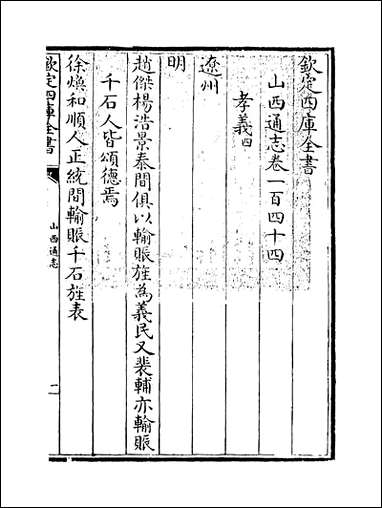 欽定四庫全書
山西通志卷一百四十四
孝義四
遼州
明
趙傑楊浩景泰間俱以輸賑旌為義民又裴輔亦輸賑
千石人皆頌德焉
徐煥和順人正統間輸賑千石旌表
欽定四庫全書
山西通志